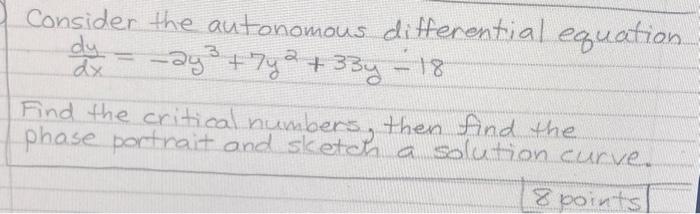 Consider the autonomous differential equation
dy/dx = -2y³ + 7y² + 33y - 18
Find the critical numbers, then find the
phase portrait and sketch a solution curve.
8 points